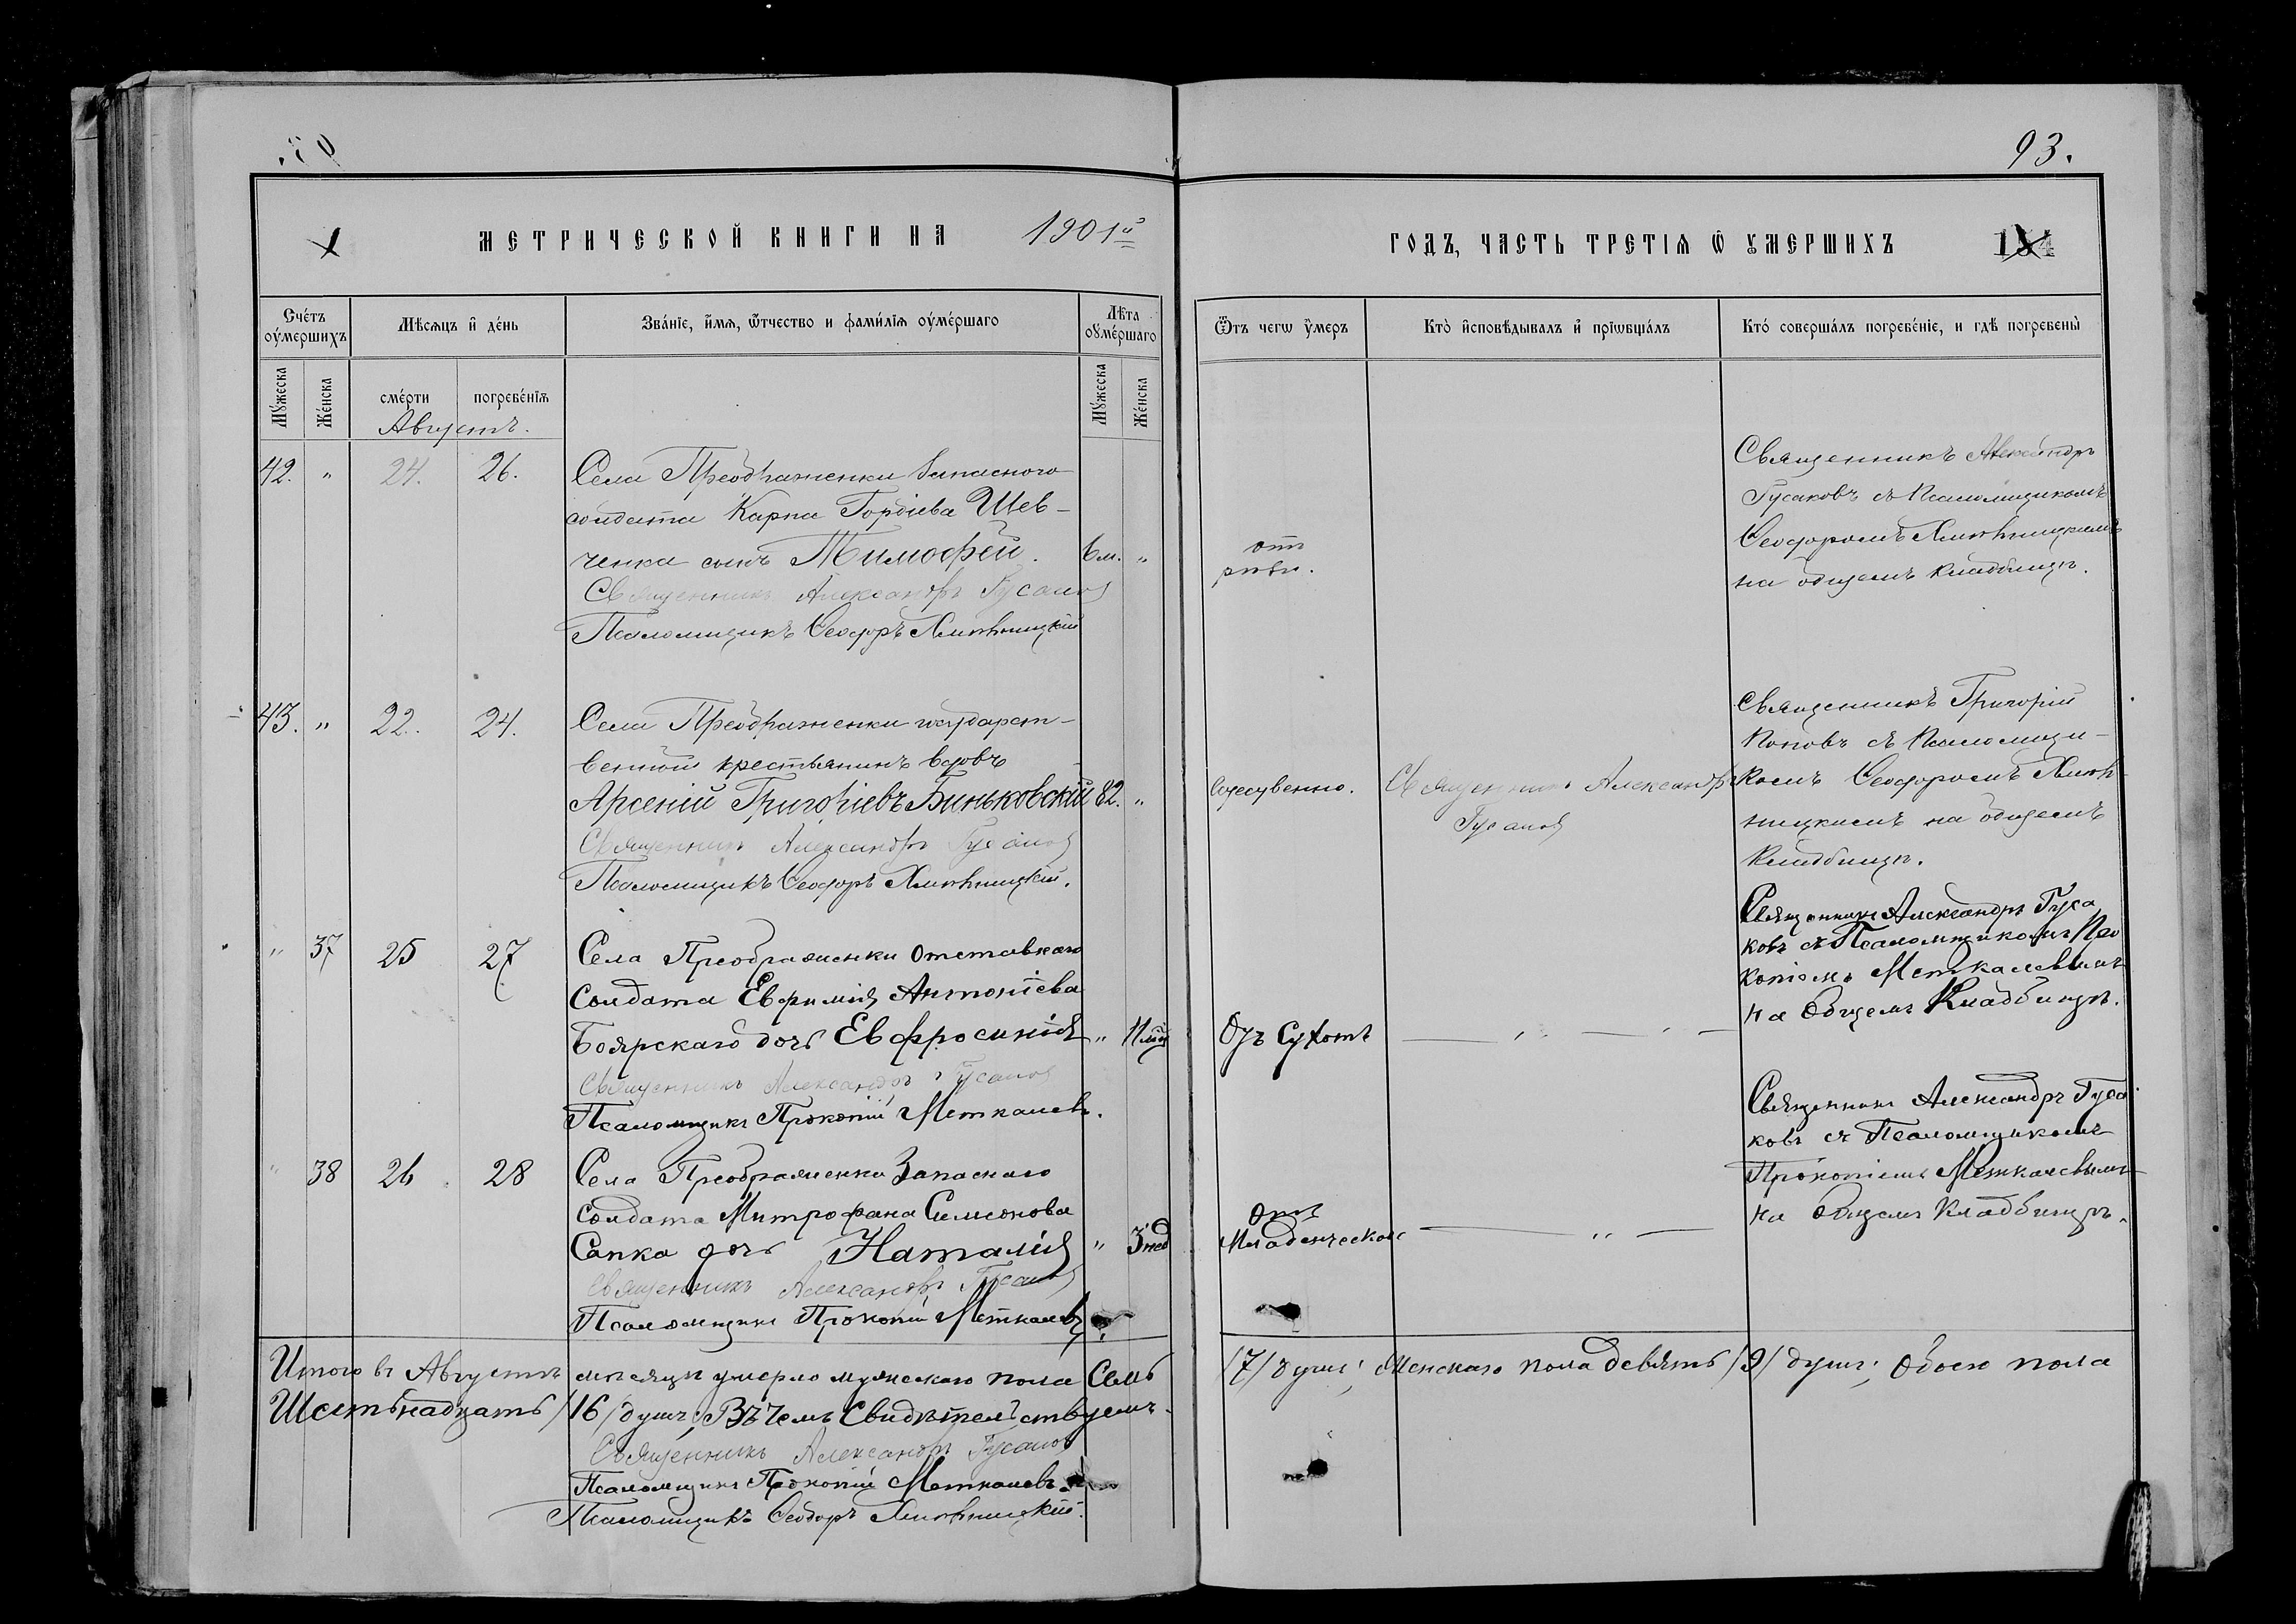 93.
МЕТРИЧЕСКОЙ КНИГИ НА 1901й
ГОДЪ, ЧАСТЬ ТРЕТІѦ Ѿ ОУМЕРШИХЪ
Сче́тъ оумершихъ
Мѣсяцъ и де́нь
Зва́ніе, и́мя, ѿтчество и фами́лія оуме́ршаго
Лѣта оуме́ршаго
Ѿтъ чегѡ оумеръ
Кто̀ исповѣ́дывалъ и пріѡбща́лъ
Кто́ соверша́лъ погребе́ніе, и гдѣ̀ погребены̀
Му́жеска
Же́нска
сме́рти
погребе́нія
Му́жеска
Же́нска
Августъ.
42. " 24. 26.
Села Преображенки запасного
солдата Карпа Гордіева Шев-
ченка сынъ Тимофей. 6м. "
Священникъ Александръ Гусаковъ
Псаломщикъ Ѳеодоръ Хмѣльницкій
отъ
рвоты.
Священникъ Александръ
Гусаковъ съ Псаломщикомъ
Ѳеодоромъ Хмѣльницкимъ
на общемъ кладбищѣ.
43. " 22. 24.
Села Преображенки государст-
венный крестьянинъ вдовъ
Арсеній Григоріевъ Биньковскій 82. "
Священникъ Александръ Гусаковъ
Псаломщикъ Ѳеодоръ Хмѣльницкій.
Священникъ Александръ
Гусаковъ
Священникъ Григорій
Поповъ съ Псаломщи-
комъ Ѳеодоромъ Хмѣль-
ницкимъ на общемъ
кладбищѣ.
" 37 25 27
Села Преображенки отставного
Солдата Евфимія Антоніева
Боярскаго дочь Евфросинія " 11 мц
Священникъ Александръ Гусаковъ
Псаломщикъ Прокопій Меткалевъ.
Отъ Сухотъ
Священникъ Александръ Гуса
ковъ съ Псаломщикомъ Про
копіемъ Меткалевымъ
на общемъ Кладбищѣ.
" 38 26 28
Села Преображенки Запаснаго
Солдата Митрофана Симеонова
Сапка дочь Наталія " 3 нед
Священникъ Александръ Гусаковъ
Псаломщикъ Прокопій Меткалевъ
отъ
Младенческой
Священникъ Александръ Гуса
ковъ съ Псаломщикомъ
Прокопіемъ Меткалевымъ
на общемъ Кладбищѣ.
Итого въ Августѣ мѣсяцѣ умерло мужескаго пола Семь /7/ душъ; Женскаго пола девять /9/ душъ; Обоего пола
Шестьнадцать /16/ душъ; Въ чемъ Свидѣтельствуемъ.
Священникъ Александръ Гусаковъ
Псаломщикъ Прокопій Меткалевъ.
Псаломщикъ Ѳеодоръ Хмѣльницкій.